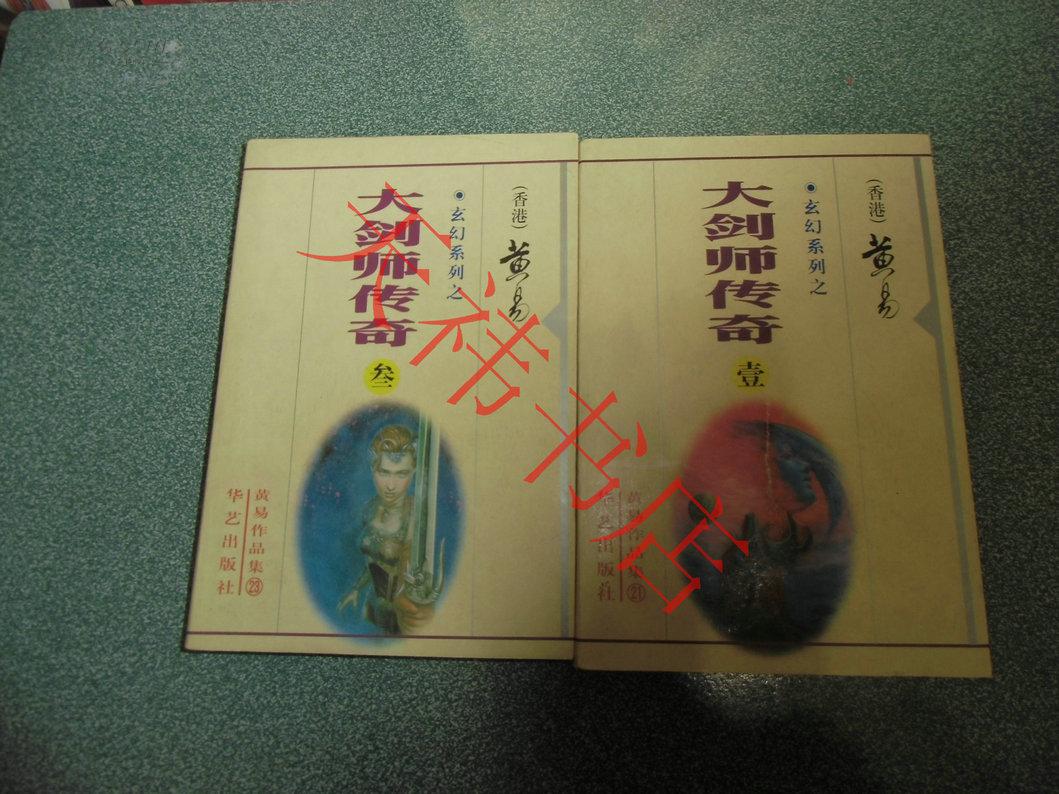 大剑师传奇
叁
玄幻系列之
(香港)
黄易
黄易作品集㉓
华艺出版社
大剑师传奇
壹
玄幻系列之
(香港)
黄易
黄易作品集㉑
华艺出版社
天祎书店